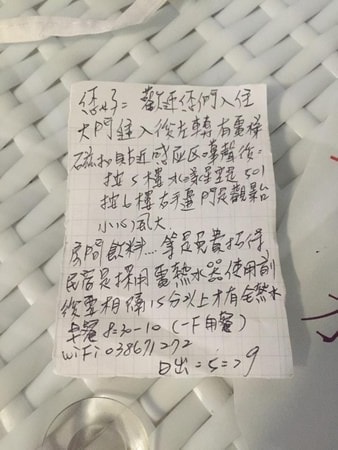 您好= 歡迎你們入住
大門進入後左轉有電梯
磁扣貼近感应区嗶聲後=
按5樓水晶星空是501
按6樓右手邊門是觀景台
小心風大
房間飲料....等是免費招待,
民宿是採用電熱水器使用前
後要相隔15分以上才有全熱水
早餐8=30-10 (一F用餐)
WiFi 038671272
日出=5=29